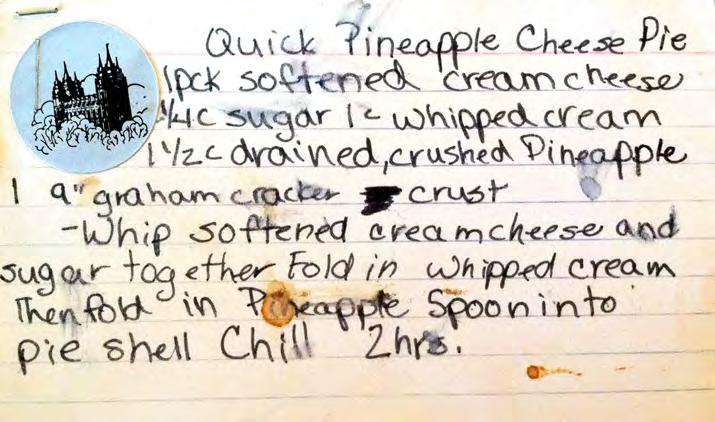 Quick Pineapple Cheese Pie
1pck softened creamcheese
1/4c sugar 1c whipped cream
1 1/2c drained, crushed Pineapple
1 9" graham cracker crust
-Whip softened creamcheese and
sugar together Fold in whipped cream
Then fold in Pineapple Spoon into
pie shell Chill 2hrs.